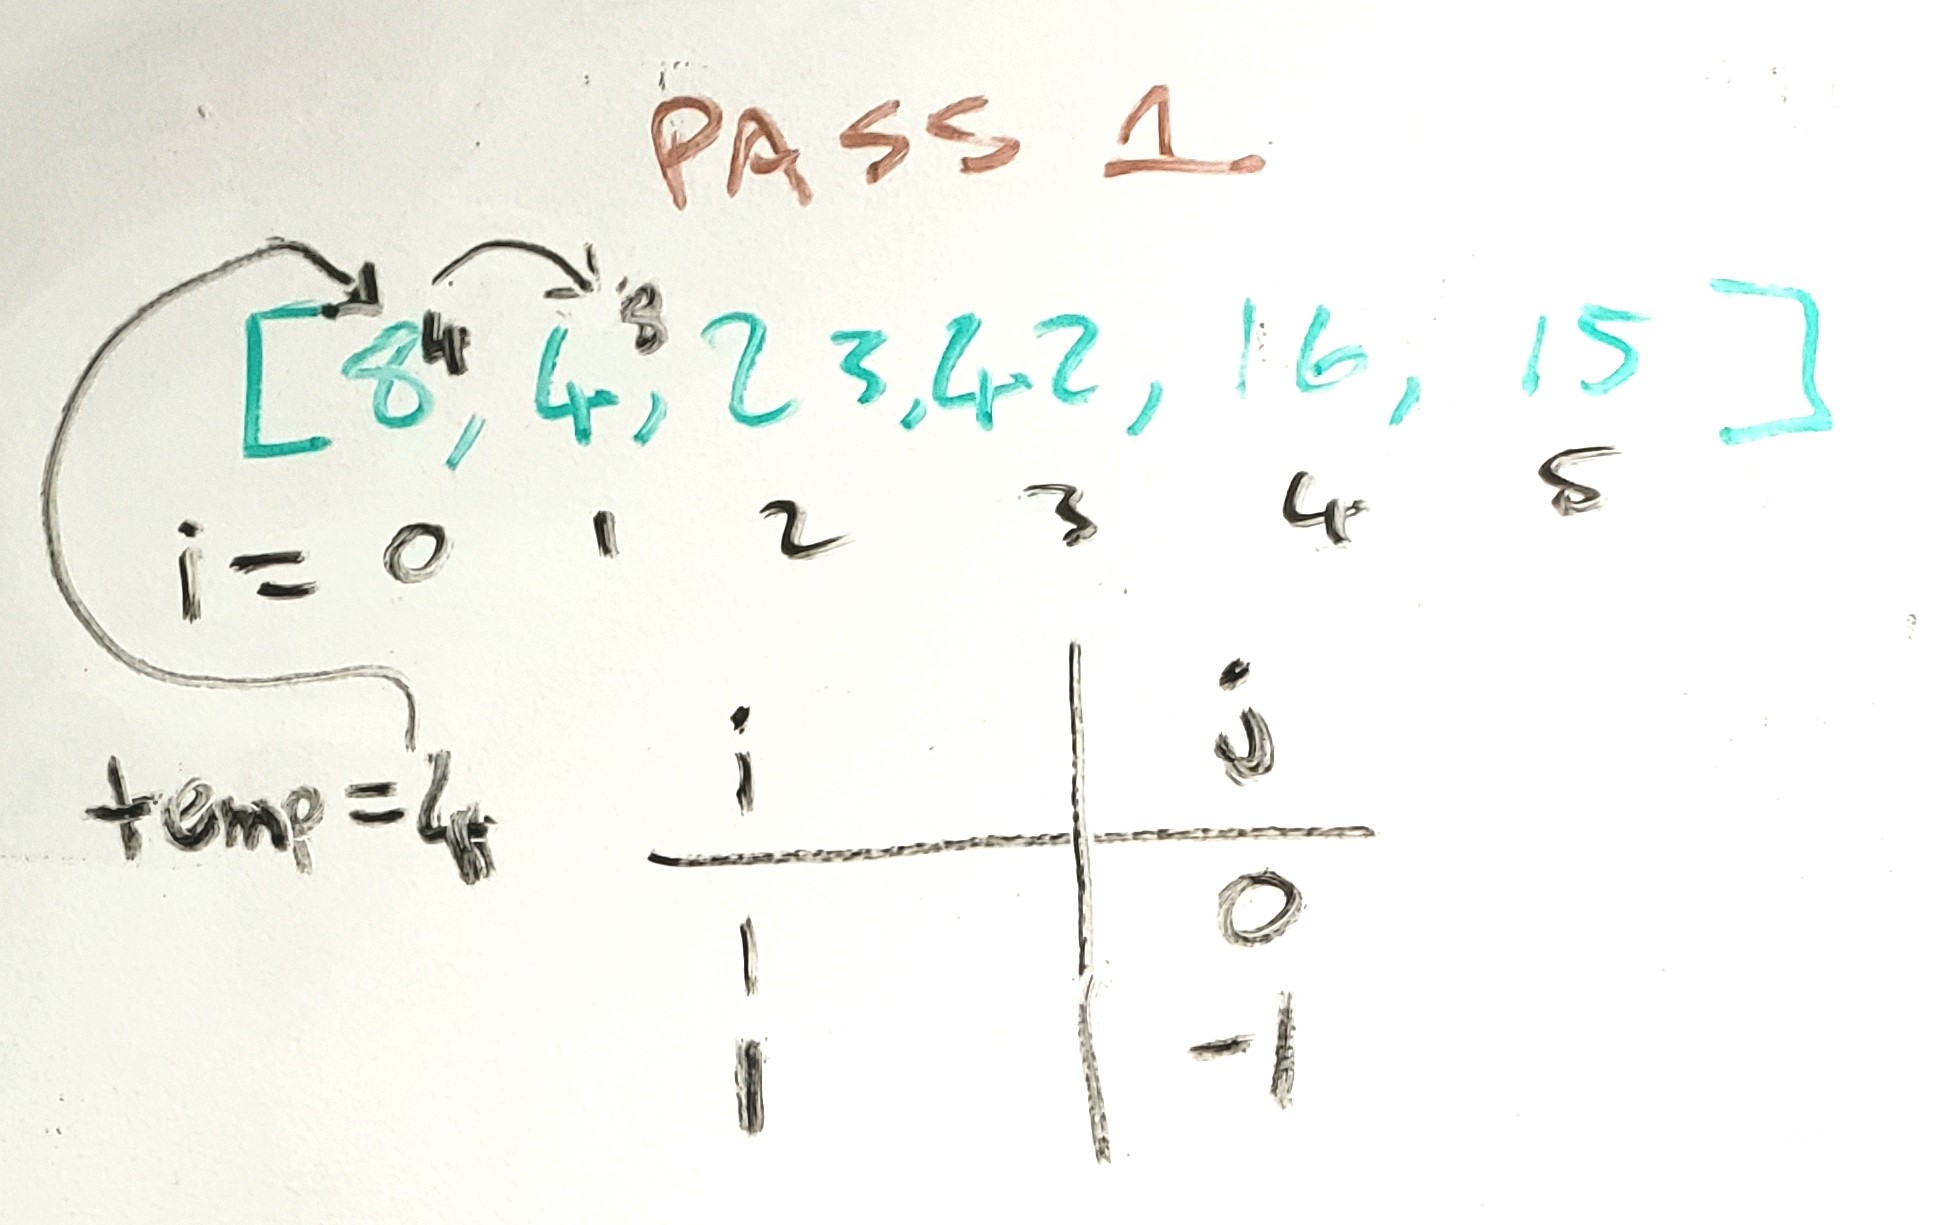 PASS 1
4 8
[8, 4, 23, 42, 16, 15]
i = 0 1 2 3 4 5
i j
temp = 4
1 0
1 -1